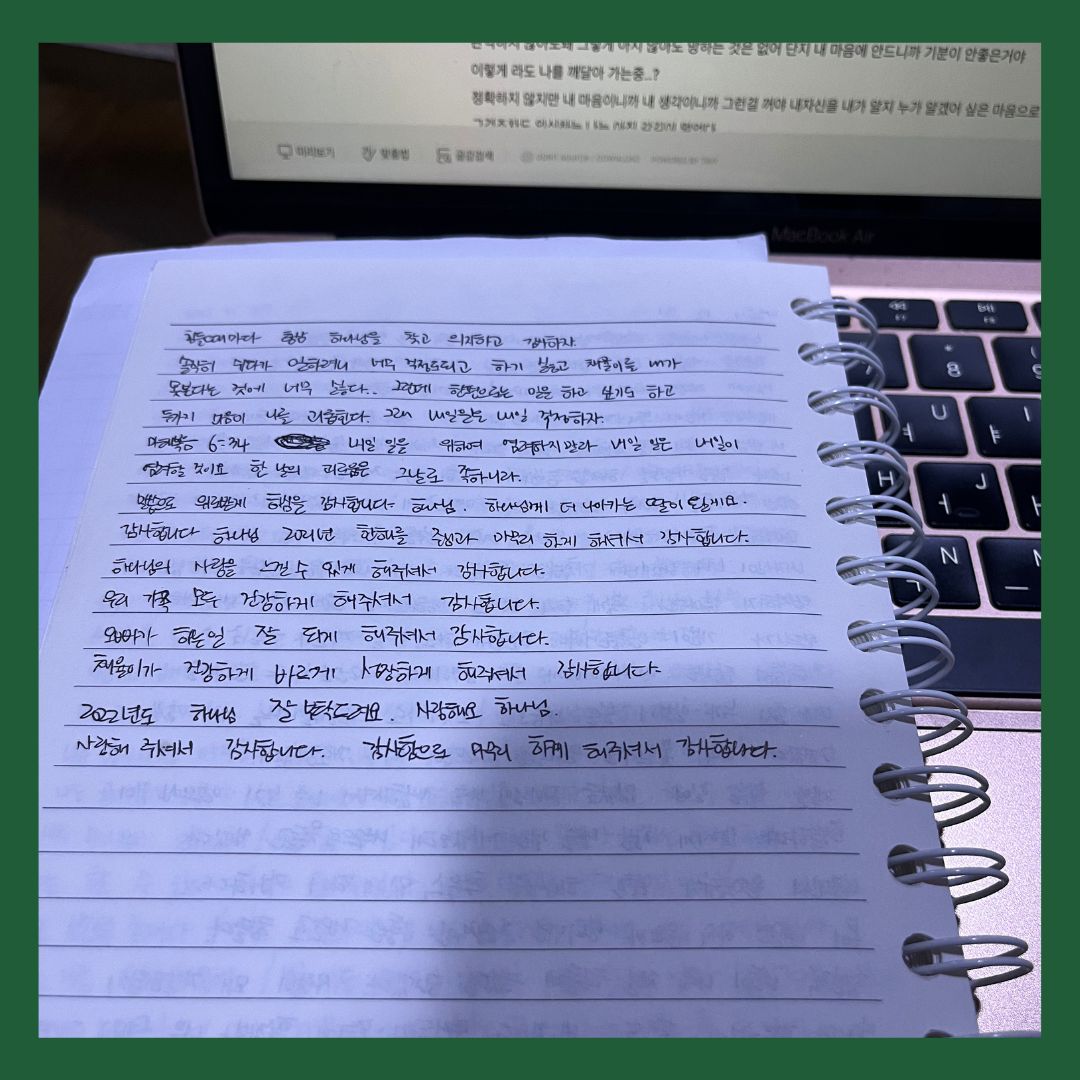 이렇게 라도 나를 깨달아 가는중..?
정확하지 않지만 내 마음이니까 내 생각이니까 그런걸 꺼야 내자신을 내가 알지 누가 알겠어 싶은 마음으로
미리보기 맞춤법 글감검색
MacBook Air
힘들때마다 항상 하나님을 찾고 의지하고 기뻐하자.
솔직히 쉬다가 일하려니 너무 걱정도되고 하기 싫고 채율이를 내가
못본다는 것에 너무 싫다.. 그런데 한편으로는 일을 하고 싶기도 하고
두가지 마음이 나를 괴롭힌다. 그래 내일일은 내일 걱정하자.
마태복음 6:34 내일 일을 위하여 염려하지말라 내일 일은 내일이
염려할 것이요 한 날의 괴로움은 그날로 족하니라.
말씀으로 위로받게 하심을 감사합니다 하나님. 하나님께 더 나아가는 딸이 될게요.
감사합니다 하나님 2021년 한해를 주님과 마무리 하게 해주셔서 감사합니다.
하나님의 사랑을 느낄 수 있게 해주셔서 감사합니다.
우리 가족 모두 건강하게 해주셔서 감사합니다.
오빠가 하는일 잘 되게 해주셔서 감사합니다.
채율이가 건강하게 바르게 사랑하게 해주셔서 감사합니다.
2022년도 하나님 잘 부탁드려요. 사랑해요 하나님.
사랑해 주셔서 감사합니다. 감사함으로 마무리 하게 해주셔서 감사합니다.
8
9
N